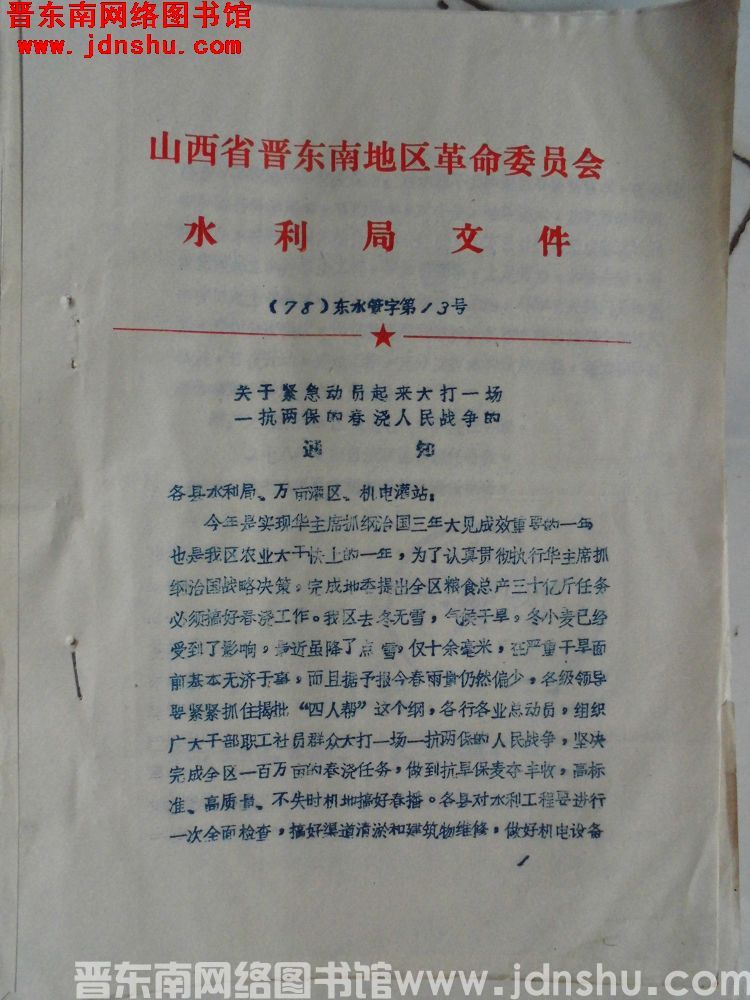 晋东南网络图书馆
www.jdnshu.com
山西省晋东南地区革命委员会
水利局文件
(78)东水管字第13号
关于紧急动员起来大打一场
一抗两保的春浇人民战争的
通知
各县水利局、万亩灌区、机电灌站:
今年是实现华主席抓纲治国三年大见成效重要的一年
也是我区农业大干快上的一年,为了认真贯彻执行华主席抓
纲治国战略决策。完成地委提出全区粮食总产三十亿斤任务
必须搞好春浇工作。我区去冬无雪,气候干旱。冬小麦已经
受到了影响。最近虽降了点雪。仅十余毫米,在严重干旱面
前基本无济于事。而且据予报今春雨量仍然偏少,各级领导
要紧紧抓住揭批“四人帮”这个纲,各行各业总动员,组织
广大干部职工社员群众大打一场一抗两保的人民战争,坚决
完成全区一百万亩的春浇任务,做到抗旱保麦夺丰收,高标
准、高质量、不失时机地搞好春播。各县对水利工程要进行
一次全面检查,搞好渠道清淤和建筑物维修,做好机电设备
1
晋东南网络图书馆www.jdnshu.com